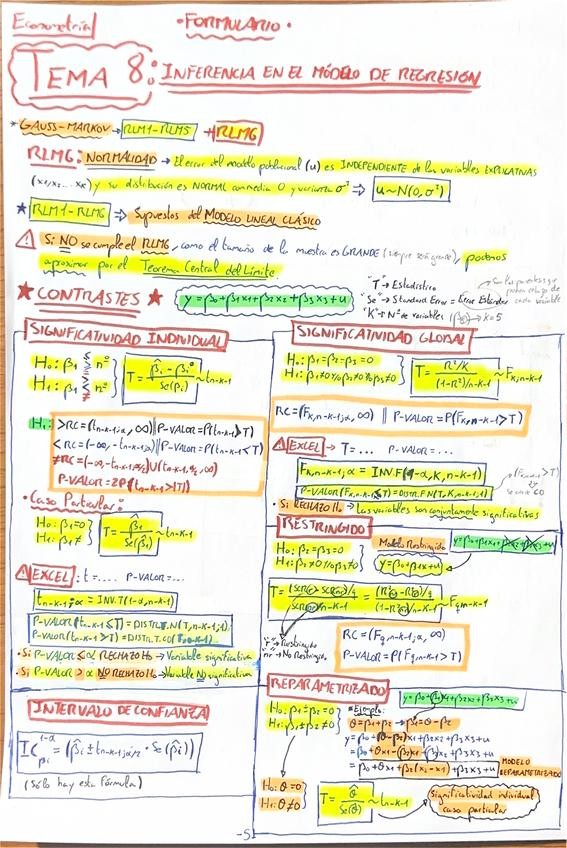 Econometría
·FORMULARIO·
TEMA 8: INFERENCIA EN EL MODELO DE REGRESIÓN
* GAUSS-MARKOV → RLM1-RLM5 + RLM6
RLM6: NORMALIDAD → El error del modelo poblacional (u) es INDEPENDIENTE de las variables EXPLICATIVAS
(x1, x2, ... xk) y su distribución es NORMAL con media 0 y varianza σ² ⇒ u~N(0, σ²)
★ RLM1-RLM6 ⇒ Supuestos del MODELO LINEAL CLÁSICO
⚠ Si NO se cumple el RLM6, como el tamaño de la muestra es GRANDE (siempre será grande), podemos
aproximar por el Teorema Central del Límite
★ CONTRASTES ★
y = β0 + β1x1 + β2x2 + β3x3 + u
"T" → Estadístico
"Se" → Standard Error = Error Estándar
"K" → Nº de variables (β5) → k=5
SIGNIFICATIVIDAD INDIVIDUAL
H0: β1 nº
H1: β1 nº
T = β̂i - βi⁰ / Se(β̂i) ~ tn-k-1
H1: > RC = (tn-k-1;α, ∞) || P-VALOR = P(tn-k-1 > T)
< RC = (-∞, -tn-k-1;α) || P-VALOR = P(tn-k-1 < T)
≠ RC = (-∞, -tn-k-1;α/2) U (tn-k-1;α/2, ∞)
P-VALOR = 2P(tn-k-1 > |T|)
· Caso Particular:
H0: β1 = 0
H1: β1 ≠
T = β̂1 / Se(β̂1) ~ tn-k-1
⚠ EXCEL: t = ... P-VALOR = ...
tn-k-1;α = INV.T(1-α, n-k-1)
P-VALOR (tn-k-1 ≤ T) = DISTR.T.N(T, n-k-1; 1)
P-VALOR (tn-k-1 > T) = DISTR.T.CD(T, n-k-1)
· Si P-VALOR ≤ α RECHAZO H0 → Variable significativa
· Si P-VALOR > α NO RECHAZO H0 → Variable NO significativa
INTERVALO DE CONFIANZA
IC βi 1-α = (β̂i ± tn-k-1;α/2 · Se(β̂i))
(Sólo hay esta fórmula)
SIGNIFICATIVIDAD GLOBAL
H0: β1 = β2 = β3 = 0
H1: β1 ≠ 0 y/o β2 ≠ 0 y/o β3 ≠ 0
T = R²/K / (1-R²)/n-k-1 ~ Fk,n-k-1
RC = (Fk,n-k-1;α, ∞) || P-VALOR = P(Fk,n-k-1 > T)
⚠ EXCEL → T = ... P-VALOR = ...
Fk,n-k-1;α = INV.F(1-α, K, n-k-1)
P-VALOR (Fk,n-k-1 ≤ T) = DISTR.F.N(T, K, n-k-1; 1)
· Si RECHAZO H0 → Las variables son conjuntamente significativas
RESTRINGIDO
H0: β2 = β3 = 0
H1: β2 ≠ 0 y/o β3 ≠ 0
Modelo Restringido
y = β0 + β1x1 + u
y = β0 + β1x1 + β2x2 + β3x3 + u
T = (SCRr - SCRnr)/q / SCRnr/n-k-1 = (R²nr - R²r)/q / (1-R²nr)/n-k-1 ~ Fq,n-k-1
"r" → Restringido
"nr" → No Restringido
RC = (Fq,n-k-1;α, ∞)
P-VALOR = P(Fq,n-k-1 > T)
REPARAMETRIZADO
y = β0 + β1x1 + β2x2 + β3x3 + u
H0: β1 ± β2 = 0
H1: β1 ± β2 ≠ 0
* Ejemplo:
θ = β1 + β2 → β1 = θ - β2
y = β0 + (θ - β2)x1 + β2x2 + β3x3 + u
= β0 + θx1 - β2x1 + β2x2 + β3x3 + u
= β0 + θx1 + β2(x2 - x1) + β3x3 + u
MODELO
REPARAMETRIZADO
H0: θ = 0
H1: θ ≠ 0
T = θ̂ / Se(θ̂) ~ tn-k-1
Significatividad individual
caso particular
-5-